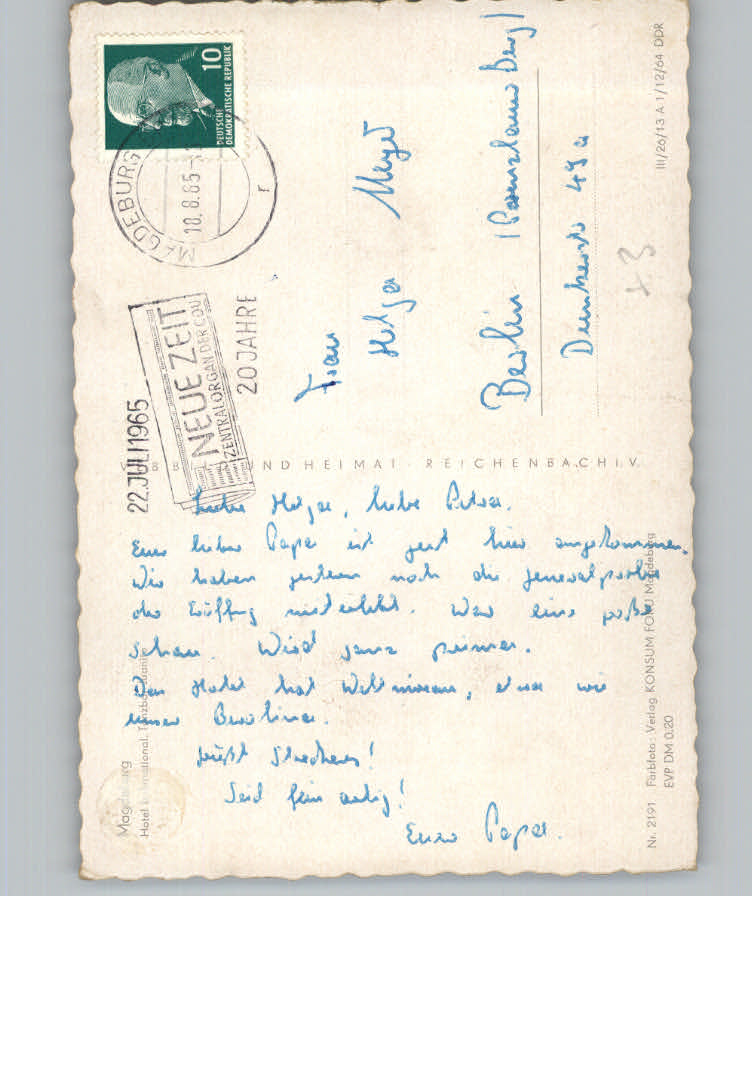 10
DEUTSCHE
DEMOKRATISCHE REPUBLIK
MAGDEBURG
18.8.65
r
NEUE ZEIT
ZENTRALORGAN DER CDU
20 JAHRE
22. JULI 1965
Frau
Helga Meyer
Berlin (Prenzlauer Berg)
Dunckerstr 49a
43
III/26/13 A 1/12/64 DDR
VEB BILD UND HEIMAT · REICHENBACH I. V.
Liebe Helga, liebe Petra.
Euer lieber Papa ist gut hier angekommen.
Wir haben gestern noch die Generalprobe
der Eröffng miterlebt. War eine große
Schau. Wird ganz prima.
Das Hotel hat Weltniveau, etwa wie
unser Berolina.
Grüßt
Seid fein artig!
Euer Papa.
Magdeburg
Hotel International. Tanzbar
Nr. 2191 Farbfoto: Verlag KONSUM FOKU Magdeburg
EVP DM 0.20